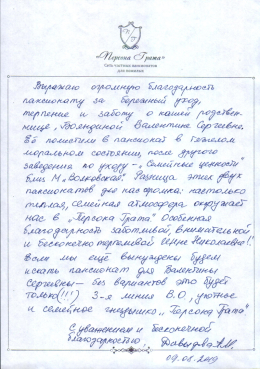 «Персона Грата»
Сеть частных пансионатов
для пожилых
Выражаю огромную благодарность
пансионату за бережный уход,
терпение и заботу о нашей родствен-
нице, Вояндиной Валентине Сергеевне.
Её поместили в пансионат в тяжелом
моральном состоянии, после другого
заведения по уходу - „Семейные ценности"
близ м. „Волковская". Разница этих двух
пансионатов для нас огромна: настолько
теплая, семейная атмосфера окружает
нас в „Персона Грата" Особенная
благодарность заботливой, внимательной
и бесконечно терпеливой Инне Николаевне!.
Если мы ещё вынуждены будем
искать пансионат для Валентины
Сергеевны - без вариантов это будет
только(!!!) 3-я линия В.О, уютное
и семейное гнездышко „Персона Грата"
С уважением и бесконечной
благодарностью, Давыдова
09.08.2019